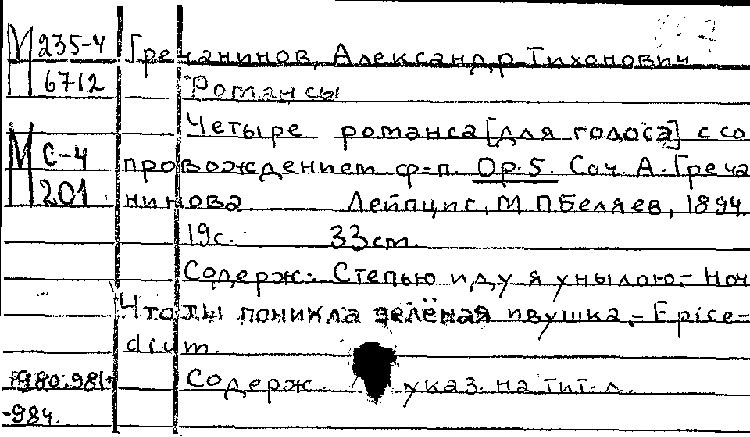 М 235-4 Гречанинов, Александр Тиханович
6712 Романсы
Четыре романса [для голоса] с со
М С-4 провождением ф-п. Op. 5. Соч. А. Греча
201 нинова Лейпциг, М. П. Беляев, 1894
19с. 33cm
Содерж.- Степью иду я унылою.- Ноч
Что ты поникла зелёная ивушка.- Epice-
dium.
1980:981- Содерж. указ. на тит. л.
-984.